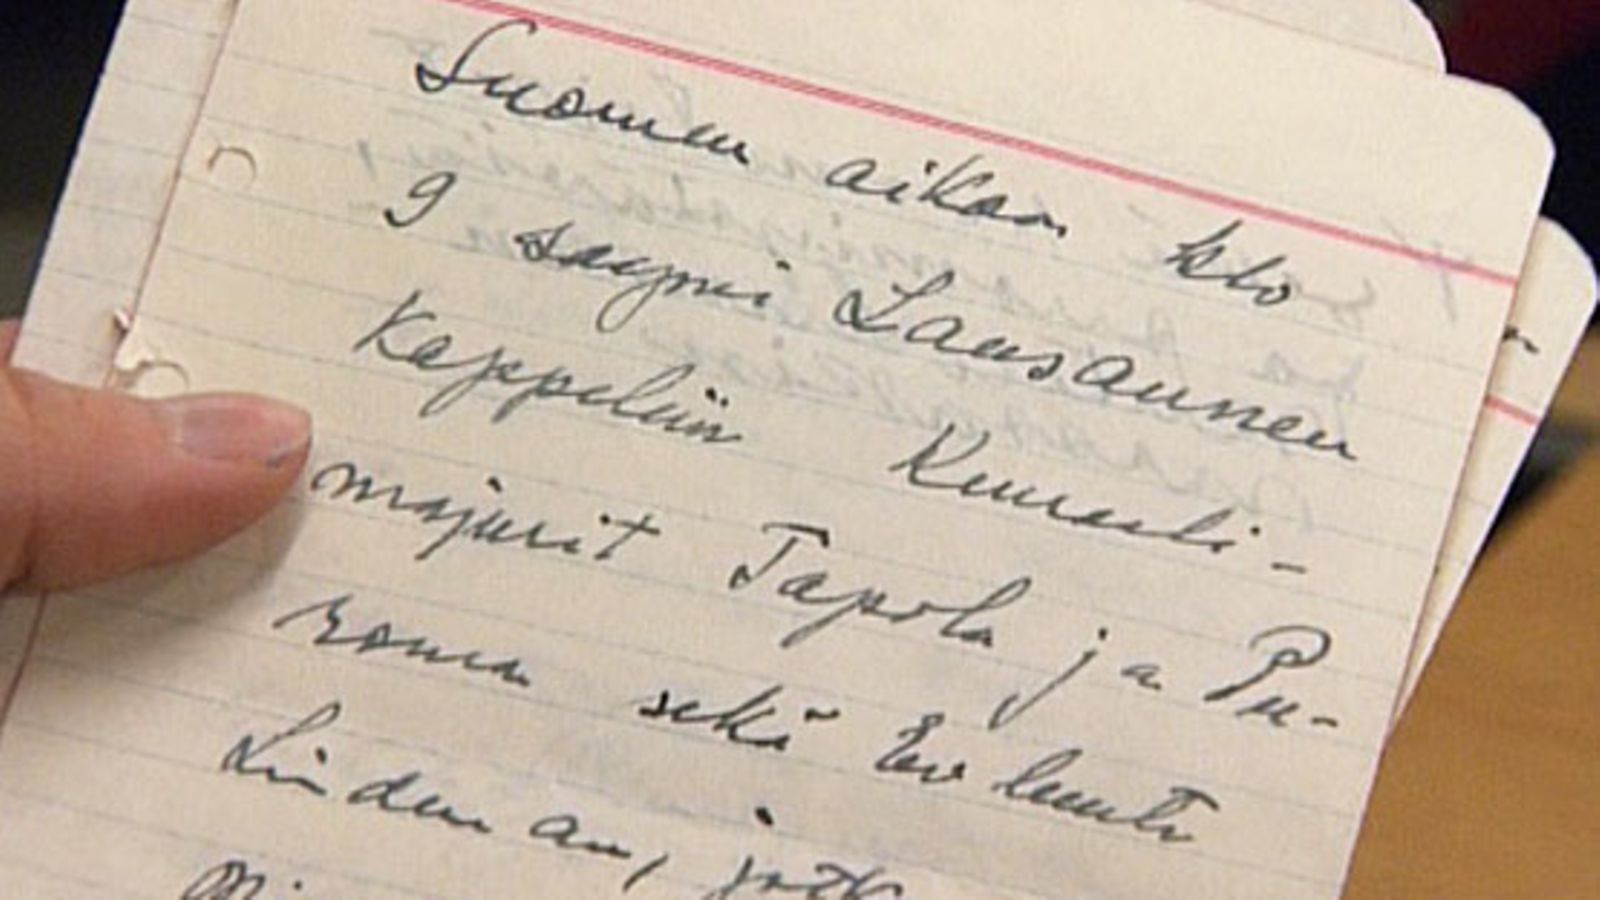 Suomen aikaa klo
9 saapui Lausannen
Kappeliin Kenraali-
majurit Tapola ja Pu-
roma sekä Ev luutn
Linden an, jotk